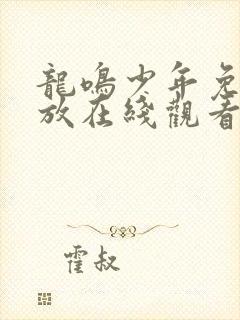 龍鳴少年免
放在綫觀看
霍叔